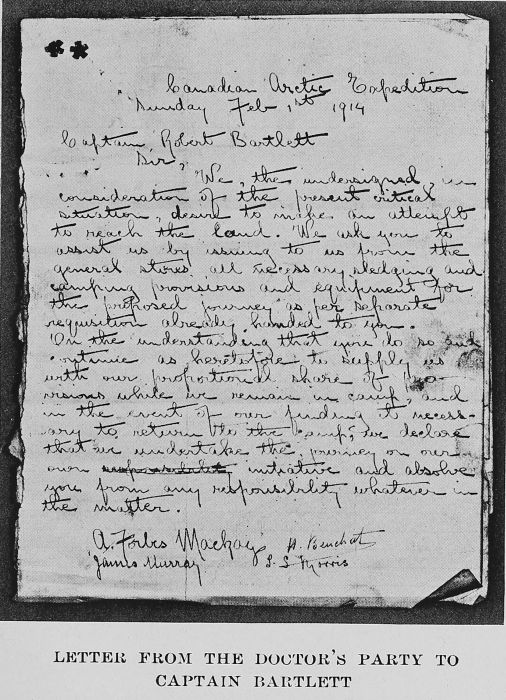 Canadian Arctic Expedition
Sunday Feb 1st 1914
Captain Robert Bartlett
Sir,
We, the undersigned, in
consideration of the present critical
situation, desire to make an attempt
to reach the land. We ask you to
assist us by issuing to us from the
general stores all necessary sledging and
camping provisions and equipment for
the proposed journey as per separate
requisition already handed to you.
On the understanding that you do so and
continue as heretofore to supply us
with our proportional share of pro-
visions while we remain in camp, and
in the event of our finding it necess-
ary to return to the camp, we declare
that we undertake the journey on our
own responsibility initiative and absolve
you from any responsibility whatever in
the matter.
A. Forbes Mackay H. Beuchat
James Murray S. S. Morris
LETTER FROM THE DOCTOR'S PARTY TO
CAPTAIN BARTLETT